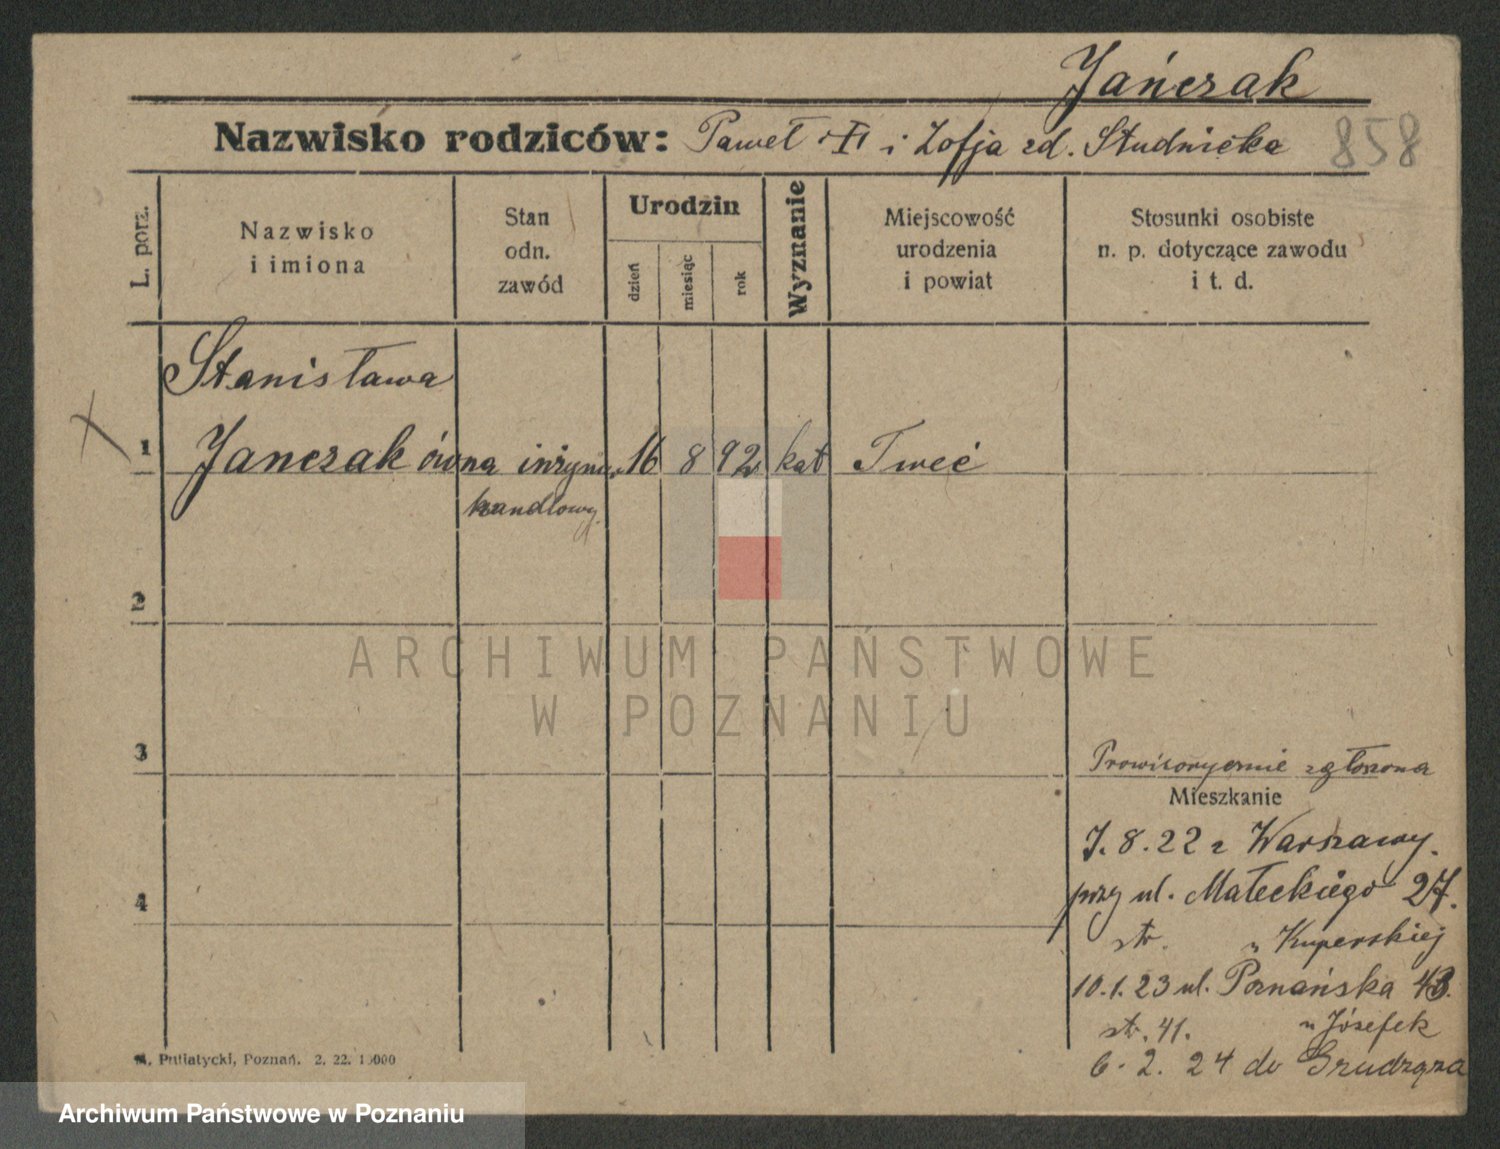 Jańczak
Nazwisko rodziców: Paweł i Zofja zd. Studnicka 858
L. porz.
Nazwisko
i imiona
Stan
odn.
zawód
Urodzin
dzień
miesiąc
rok
Wyznanie
Miejscowość
urodzenia
i powiat
Stosunki osobiste
n. p. dotyczące zawodu
i t. d.
Stanisława
1 Janczakówna inżyn. 16 8 92 kat
handlowy.
2
ARCHIWUM PAŃSTWOWE
W POZNANIU
3
Prowizorycznie zgłoszona
Mieszkanie
7. 8. 22 z Warszawy.
przy ul. Małeckiego 27.
4
str. " Kuperskiej
10. 1. 23 ul. Poznańska 43.
str. 41. " Józefek
6. 2. 24 do Grudząza
Putiatycki, Poznań. 2. 22.
Archiwum Państwowe w Poznaniu